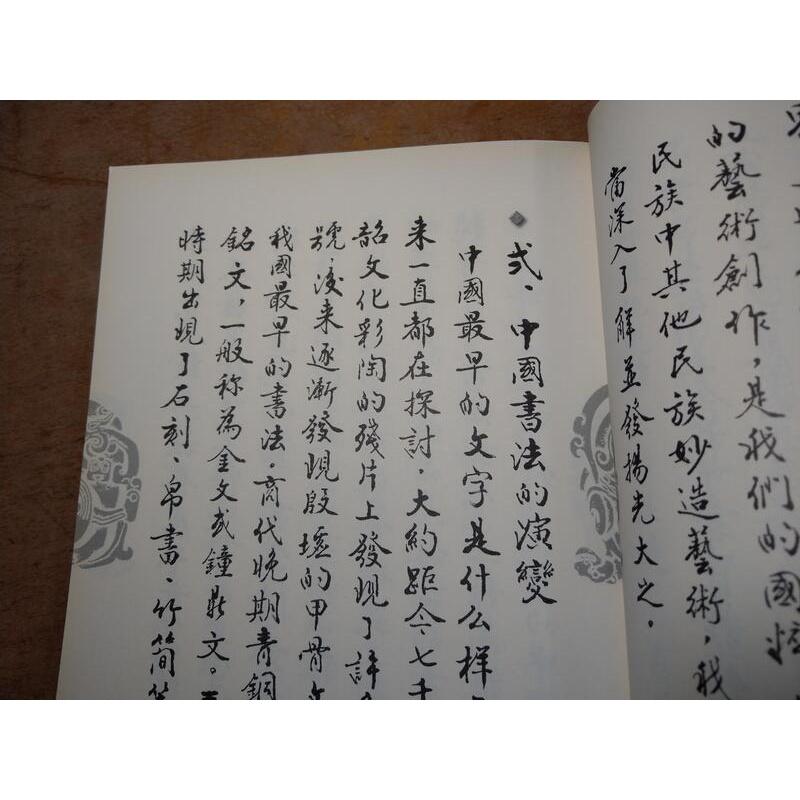 的藝術創作，是我們的國
民族中其他民族妙造藝術，我
當深入了解並發揚光大之。
弍、中國書法的演變
中國最早的文字是什么樣
来一直都在探討，大約距今七千
韶文化彩陶的殘片上發現了許
號，後来逐漸發現殷墟的甲骨
我國最早的書法，商代晚期青銅
銘文，一般称為金文或鐘鼎文。
時期出現了石刻、帛書、竹簡